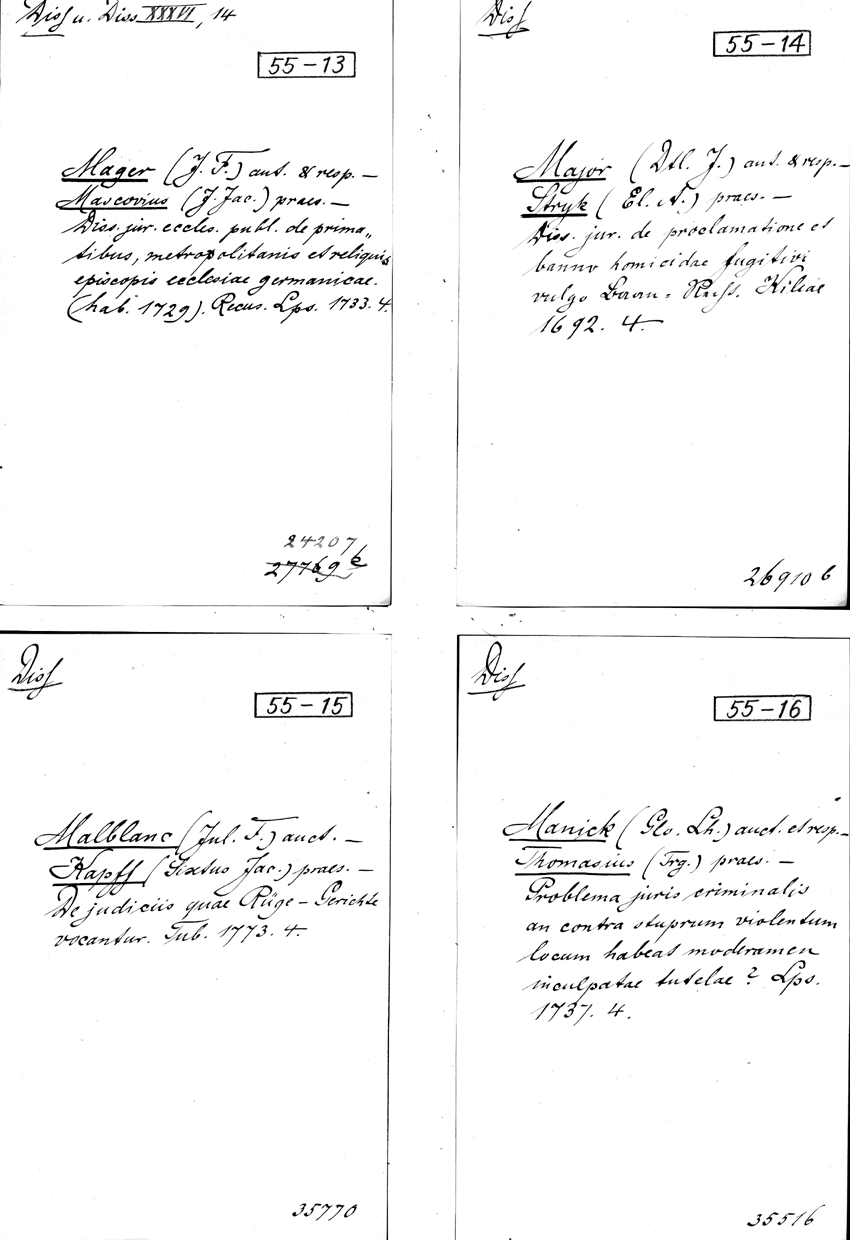 Diss u. Diss XXXVI, 14
55-13
Mager (J. F.) aut. & resp. —
Mascovius (J. Jac.) praes. —
Diss. jur. eccles. publ. de prima„
tibus, metropolitanis et reliquis
episcopis ecclesiae germanicae.
(hab. 1729). Recus. Lps. 1733. 4.
24207
27769 b
Diss
55-14
Major (Dtl. J.) aut. & resp. —
Stryk (El. A.) praes. —
Diss. jur. de proclamatione et
banno homicidae fugitivi
vulgo Kiliae
1692. 4.
26910 b
Diss
55-15
Malblanc (Jul. F.) auct. —
Kapff (Sixtus Jac.) praes. —
De judiciis quae Rüge-Gerichte
vocantur. Tub. 1773. 4.
35770
Diss
55-16
Manick (Glo. Lh.) auct. et resp. —
Thomasius (Frg.) praes. —
Problema juris criminalis
an contra stuprum violentum
locum habeat moderamen
inculpatae tutelae? Lps.
1737. 4.
35516